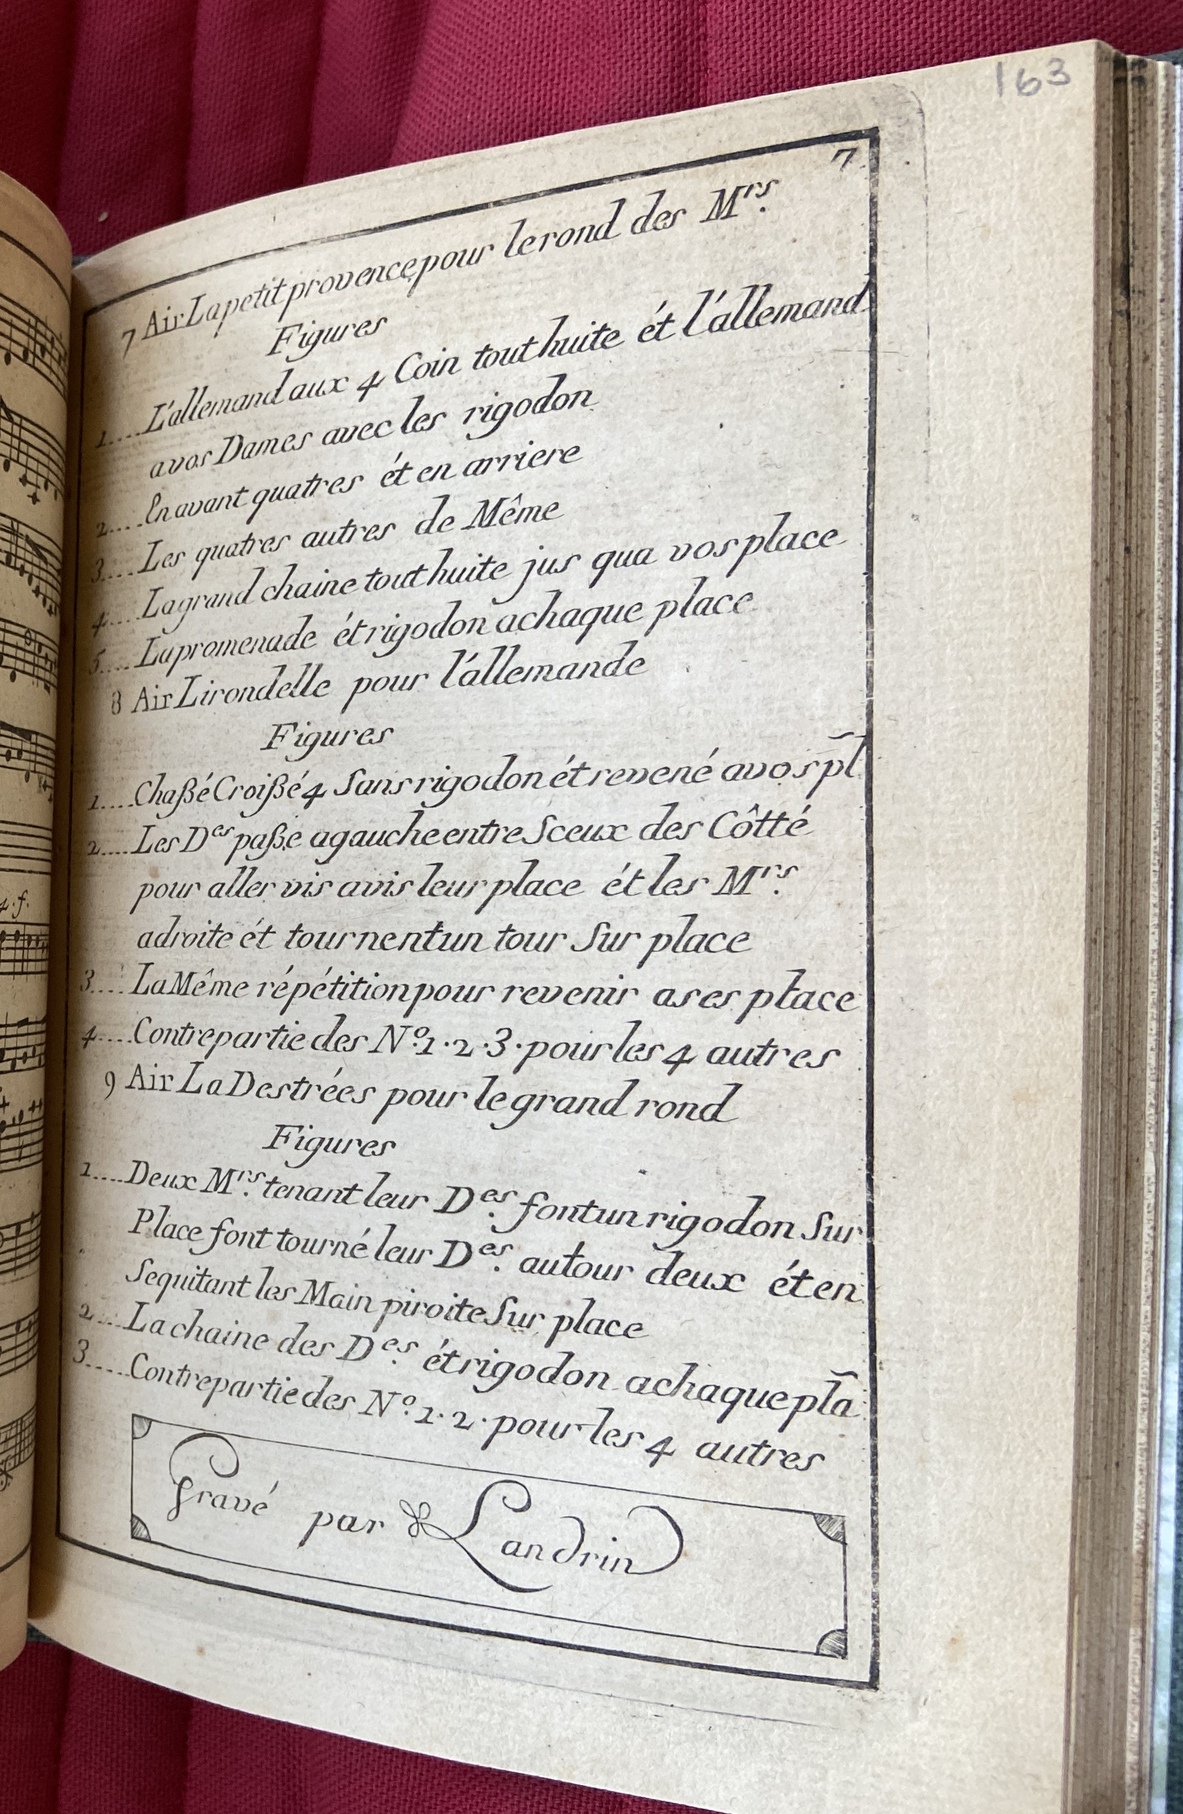 163
7
7 Air La petit provence pour le rond des Mrs.
Figures
1.... L'allemand aux 4 Coin tout huite ét l'allemand
a vos Dames avec les rigodon
2.... En avant quatres ét en arriere
3.... Les quatres autres de Même
4.... La grand chaine tout huite jus qua vos place
5.... La promenade ét rigodon a chaque place
8 Air Lirondelle pour l'allemande
Figures
1.... Chaßé Croißé 4 Sans rigodon ét revené a vos pl̃
2.... Les Des paße a gauche entre Sceux des Côtté
pour aller vis avis leur place ét les Mrs.
adroite ét tournent un tour Sur place
3.... La Même répétition pour revenir a ses place
4.... Contrepartie des No. 1 · 2 · 3 · pour les 4 autres
9 Air La Destrées pour le grand rond
Figures
1.... Deux Mrs. tenant leur Des. font un rigodon Sur
Place font tourné leur Des. autour deux ét en
Sequitant les Main piroite Sur place
2.... La chaine des Des. ét rigodon a chaque pla̅
3.... Contrepartie des No. 1 · 2 · pour les 4 autres
Gravé par Landrin
4. f.